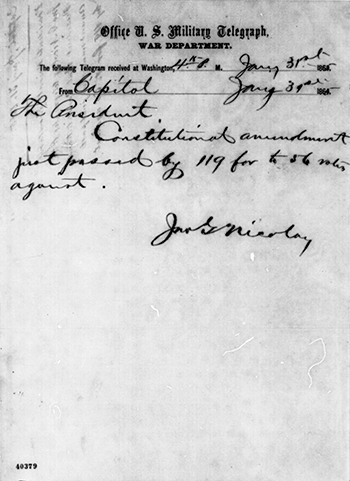 Office U. S. Military Telegraph,
WAR DEPARTMENT.
The following Telegram received at Washington, M. Jany 31st 186
From Capitol Jany 31st 186
The President.
Constitutional amendment
just passed by 119 for to 56 votes
against.
Jno G Nicolay
40379